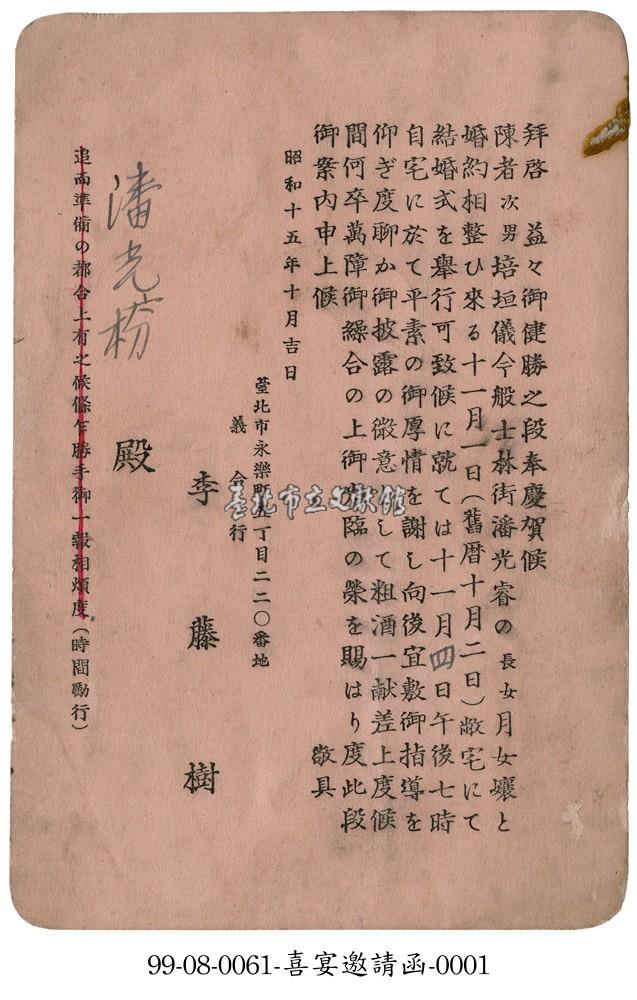 拜啓　益々御健勝之段奉慶賀候
陳者次男培垣儀今般士林街潘光睿の長女月女孃と
婚約相整ひ來る十一月一日(舊曆十月二日)敝宅にて
結婚式を舉行可致候に就ては十一月四日午後七時
自宅に於て平素の御厚情を謝し向後宜敷御指導を
仰ぎ度聊か御披露の微意 して粗酒一献差上度候
間何卒萬障御繰合の上御 臨の榮を賜はり度此段
御案内申上候　敬具
昭和十五年十月吉日
臺北市永樂町五丁目二二〇番地
義合行
李藤樹
潘光枌
殿
追而準備の都合上有之候條乍勝手御一報相煩度(時間勵行)
臺北市立文獻館
99-08-0061-喜宴邀請函-0001